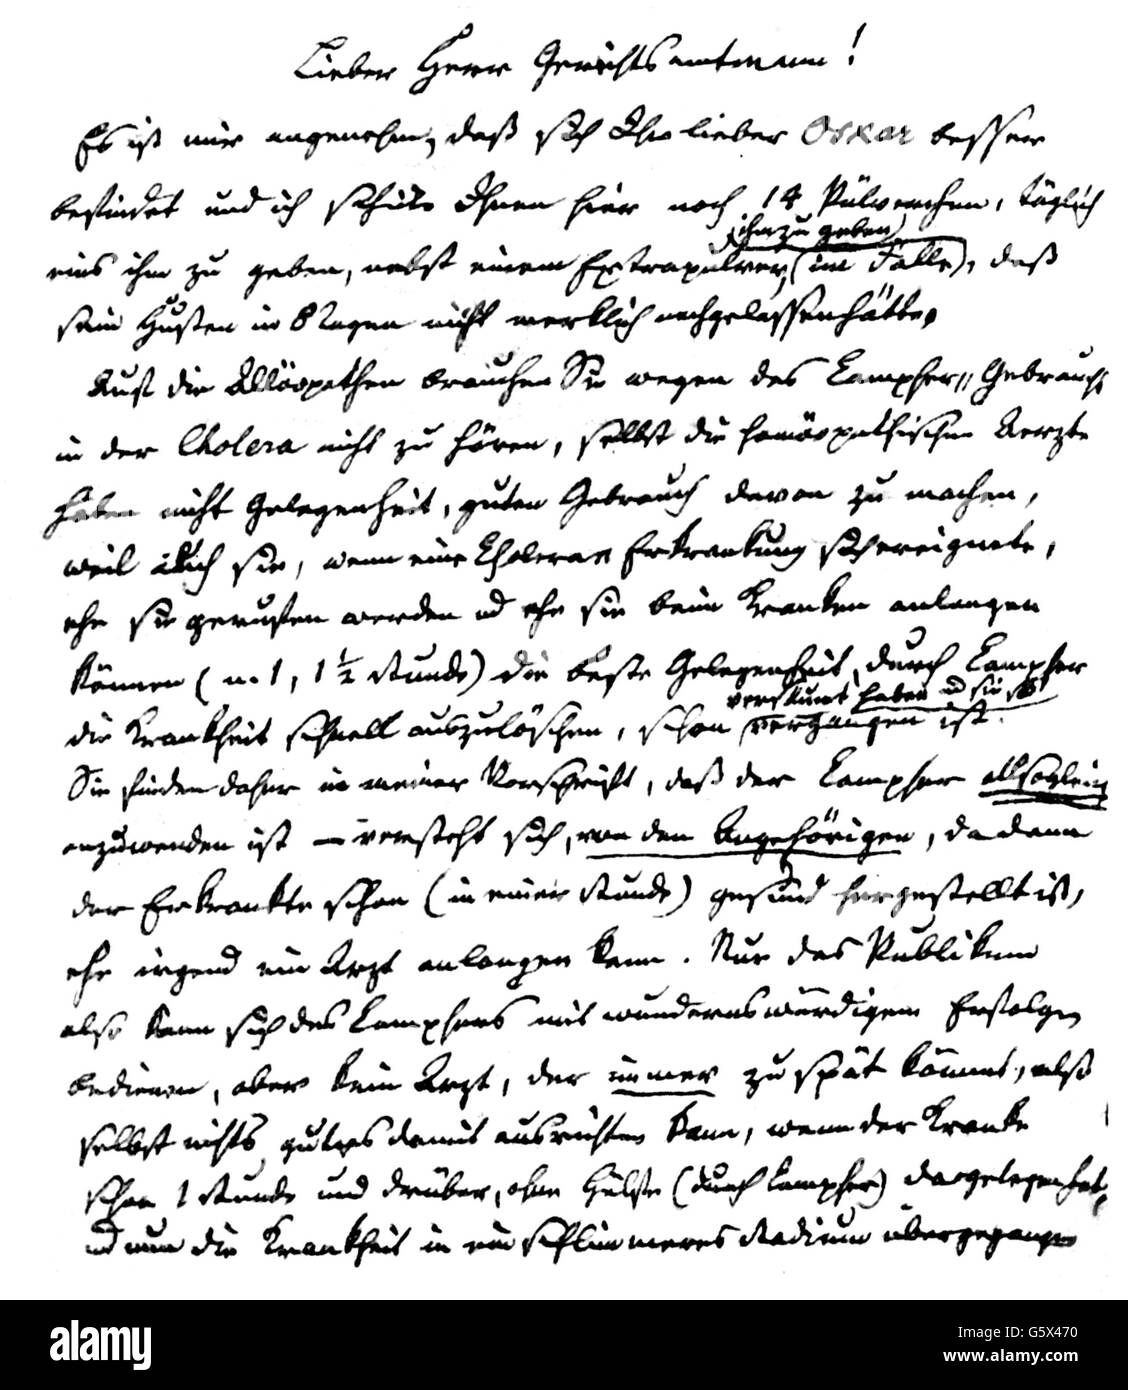 Lieber Herr Gerichtsamtmann!
Es ist mir angenehm, daß sich Ihr lieber Oskar besser
befindet und ich schicke Ihnen hier noch 14 Pülverchen, täglich
ihm zu geben
eins ihm zu geben, nebst einem Extrapulver, (im Falle), daß
sein Husten in 8 Tagen nicht merklich nachgelassen hätte.
Auf die Allöopathen brauchen Sie wegen des Campher-Gebrauchs
in der Cholera nicht zu hören, selbst die homöopathischen Aerzte
haben nicht Gelegenheit, guten Gebrauch davon zu machen,
weil auch sie, wenn eine Cholera Erkrankung sich ereignete,
ehe sie gerufen werden und ehe sie beim Kranken anlangen
können (n. 1, 1 1/2 Stunde) die beste Gelegenheit, durch Campher
versäumt haben und sie so
die Krankheit schnell auszulöschen, schon vergangen ist.
Sie finden daher in meiner Vorschrift, daß der Campher allsogleich
anzuwenden ist – versteht sich, von den Angehörigen, da dann
der Erkrankte schon (in einer Stunde) gesund hergestellt ist,
ehe irgend ein Arzt anlangen kann. Nur das Publikum
also kann sich des Camphers mit wundernswürdigem Erfolge
bedienen, aber kein Arzt, der immer zu spät kömmt, also
selbst nichts gutes damit ausrichten kann, wenn der Kranke
schon 1 Stunde und drüber, ohne Hülfe (durch Campher) dagelegen hat,
und nun die Krankheit in ein schlimmeres Stadium übergegangen
alamy
Image ID: G5X470
www.alamy.com